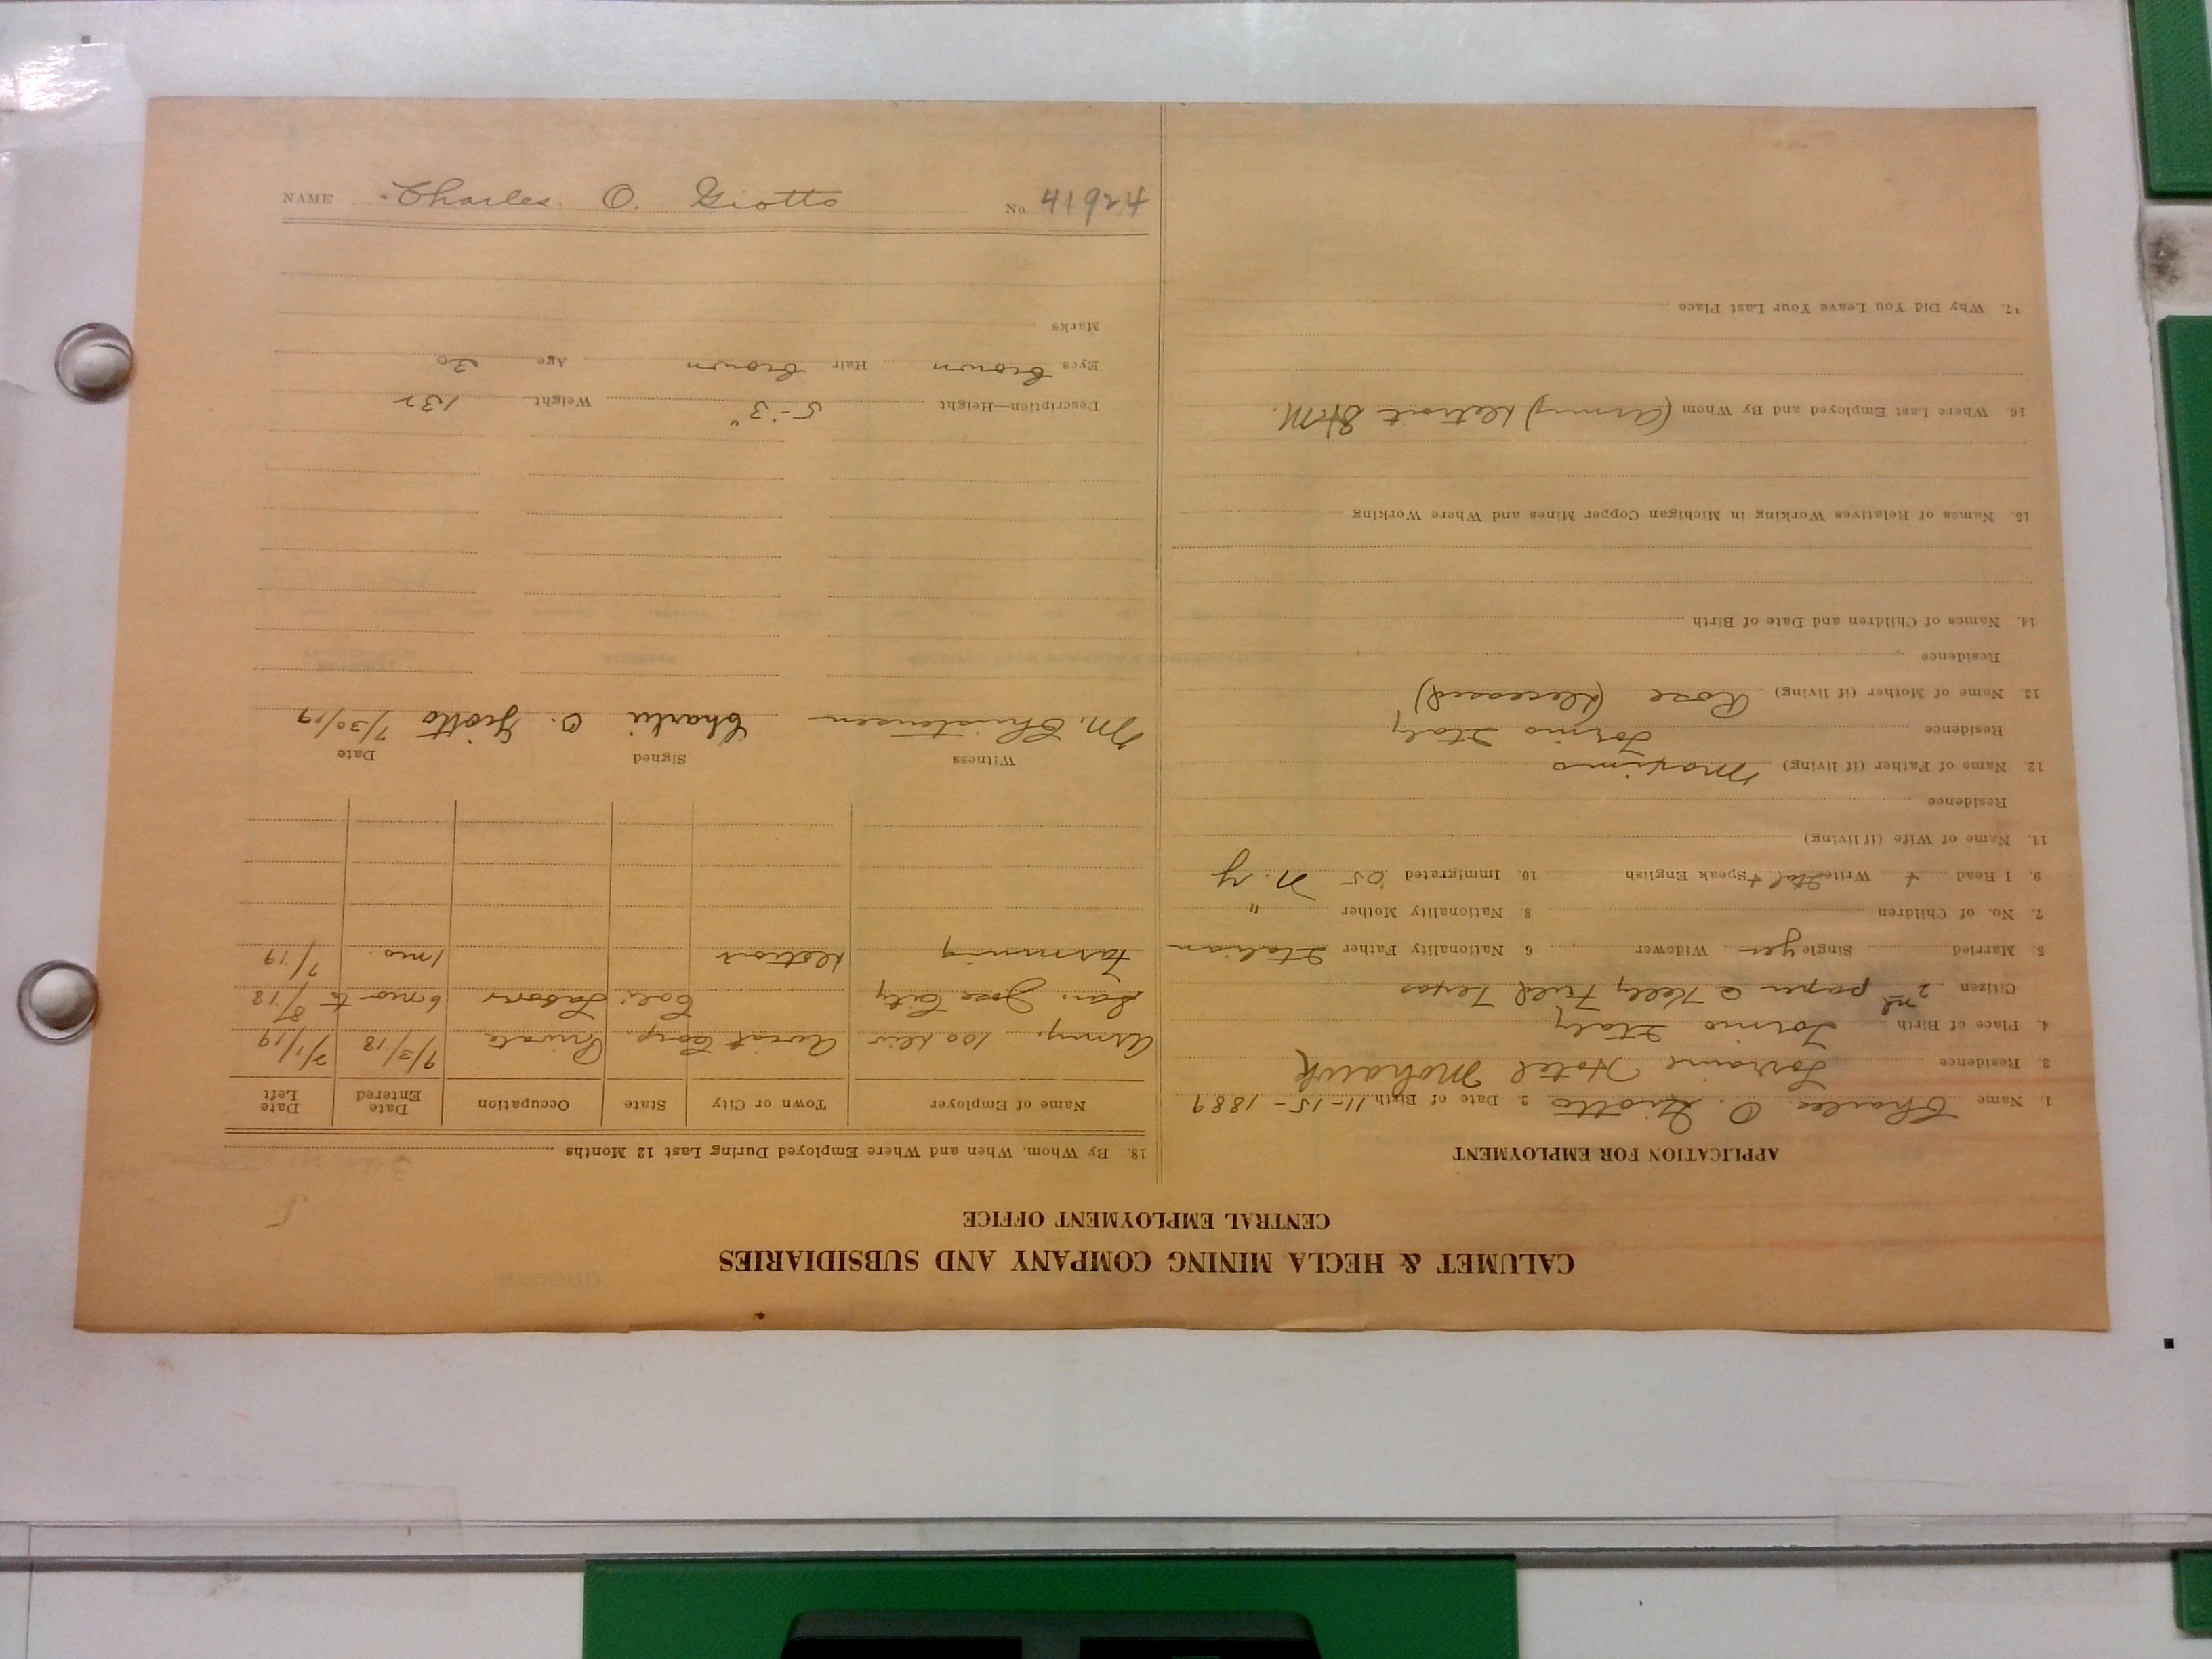 CALUMET & HECLA MINING COMPANY AND SUBSIDIARIES
CENTRAL EMPLOYMENT OFFICE
APPLICATION FOR EMPLOYMENT
1. Name Charles O. Giotto 2. Date of Birth 11-15-1889
3. Residence Lorraine Hotel Mohawk
4. Place of Birth Torino Italy
Citizen 2nd paper @ Kelly Field Texas
5. Married Single yes Widower 6 Nationality Father Italian
7. No. of Children 8. Nationality Mother "
9. I Read + Write Ital + Speak English 10. Immigrated '05 N. Y
11. Name of Wife (if living)
Residence
12. Name of Father (if living) Maximo
Residence Torino Italy
13. Name of Mother (if living) Rose (Deceased)
Residence
14. Names of Children and Date of Birth
15. Names of Relatives Working in Michigan Copper Mines and Where Working
16. Where Last Employed and By Whom (Army) Detroit
17. Why Did You Leave Your Last Place
18. By Whom, When and Where Employed During Last 12 Months
Name of Employer Town or City State Occupation Date Entered Date Left
Army. 100 Div Aviat Corp. Private 9/3/18 7/1/19
San Jose City Cali. Labor 6 mo to 8/18
Farming Detroit 1 mo. 7/19
Witness Signed Date
M. Christensen Charlie O. Giotto 7/30/19
Description—Height 5-3" Weight 132
Eyes Brown Hair Brown Age 30
Marks
NAME Charles. O. Giotto No. 41924